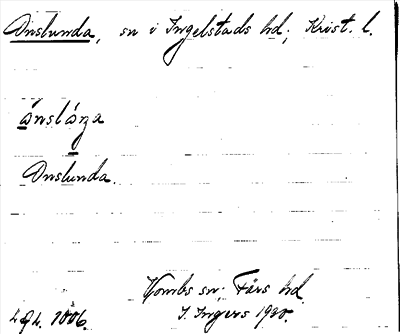 Onslunda, sn i Ingelstads hd; Krist. l.
ånslåŋa
Onslunda.
Vombs sn, Färs hd.
I. Ingers 1920.